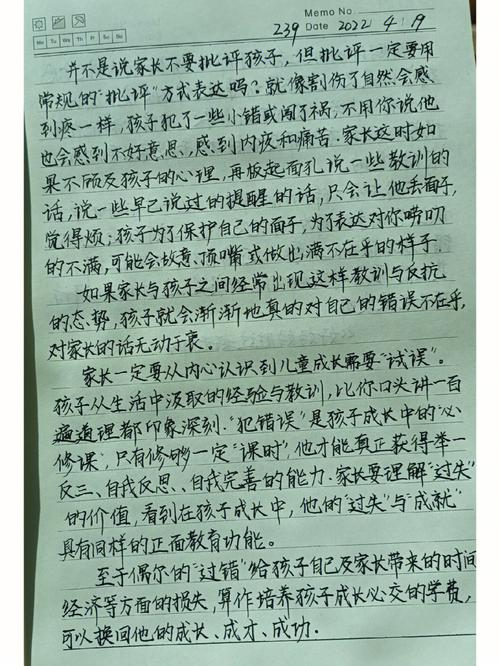 Memo No.
239 Date 2022 4 19
Mo Tu We Th Fr Sa Su
并不是说家长不要批评孩子，但批评一定要用
常规的“批评”方式表达吗？就像割伤了自然会感
到疼一样，孩子犯了一些小错或闯了祸，不用你说他
也会感到不好意思、感到内疚和痛苦。家长这时如
果不顾及孩子的心理，再板起面孔说一些教训的
话，说一些早已说过的提醒的话，只会让他丢面子，
觉得烦；孩子为了保护自己的面子，为了表达对你唠叨
的不满，可能会故意、顶嘴或做出满不在乎的样子。
如果家长与孩子之间经常出现这样教训与反抗
的态势，孩子就会渐渐地真的对自己的错误不在乎，
对家长的话无动于衷。
家长一定要从内心认识到儿童成长需要“试误”。
孩子从生活中汲取的经验与教训，比你口头讲一百
遍道理都印象深刻。“犯错误”是孩子成长中的“必
修课”，只有修够一定“课时”，他才能真正获得举一
反三、自我反思、自我完善的能力。家长要理解“过失”
的价值，看到在孩子成长中，他的“过失”与“成就”
具有同样的正面教育功能。
至于偶尔的“过错”给孩子自己及家长带来的时间
经济等方面的损失，算作培养孩子成长必交的学费，
可以换回他的成长、成才、成功．